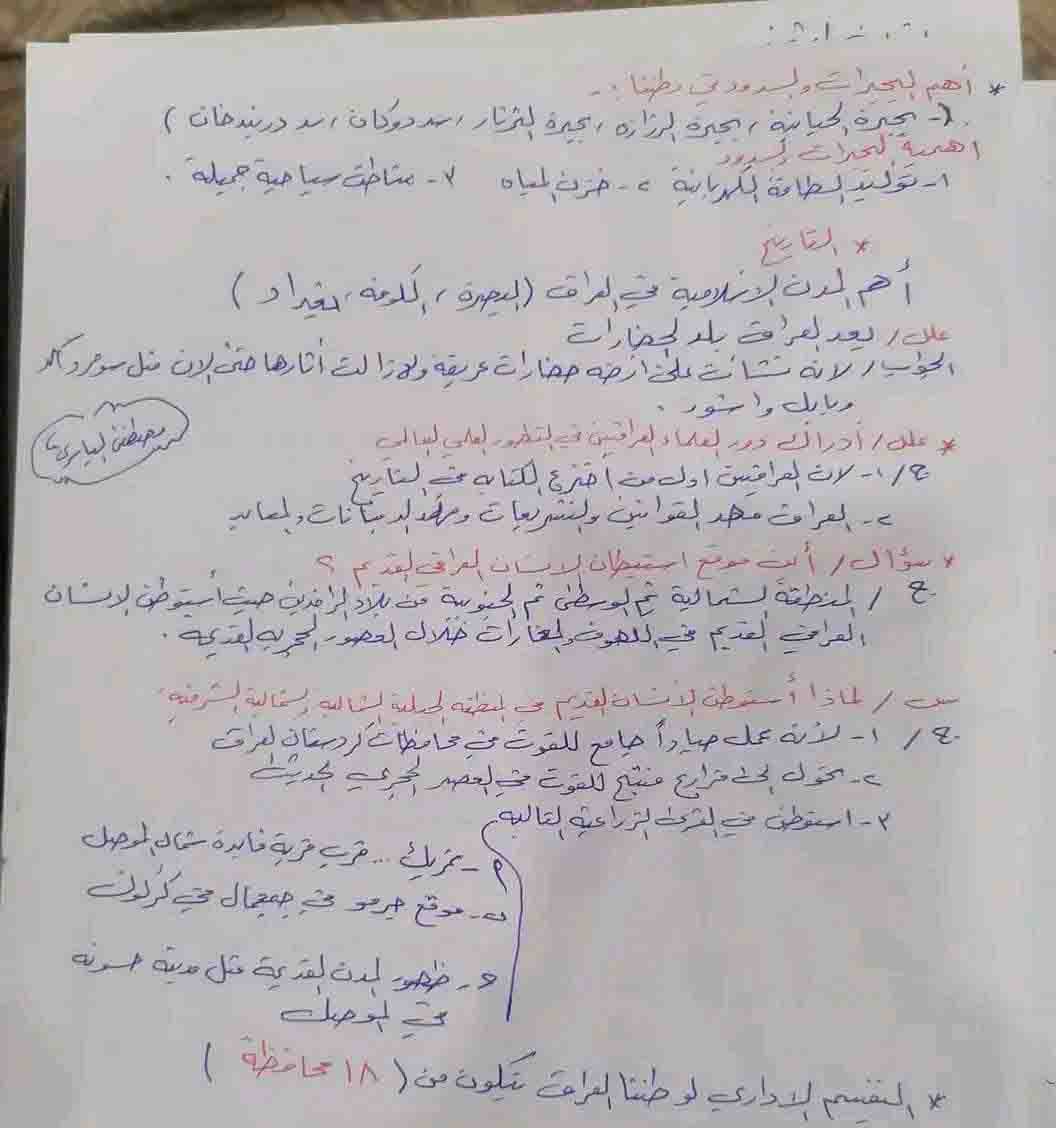 * أهم البحيرات والسدود في وطننا :-
(- بحيرة الحبانية ، بحيرة الرزازه ، بحيرة الثرثار ، سد دوكان ، سد دربندخان )
اهمية البحيرات والسدود
١- توليد الطاقة الكهربائية ٢- خزن المياه ٣- مناطق سياحية جميلة .
* التاريخ
أهم المدن الاسلامية في العراق ( البصرة ، الكوفة ، بغداد )
علل / يعد العراق بلد الحضارات
الجواب / لانه نشأت على أرضه حضارات عريقة ولازالت أثارها حتى الان مثل سومر وأكد
وبابل واشور .
مصطفى البياتي
* علل / أدراك دور العلماء العراقيين في التطور العلمي العالمي
ج / ١- لان العراقيين اول من اخترع الكتابه في التاريخ
٢- العراق مهد القوانين والتشريعات ومهد الديانات والمعابد
* سؤال / أين موقع استيطان الانسان العراقي القديم ؟
ج / المنطقة الشمالية ثم الوسطى ثم الجنوبية من بلاد الرافدين حيث أستوطن الانسان
العراقي القديم في الكهوف والمغارات خلال العصور الحجريه القديمه .
س / لماذا أستوطن الأنسان القديم في المنطقه الجبلية الشماليه والشمالية الشرقية
ج / ١- لأنه عمل صياداً جامع للقوت في محافظات كردستان العراق
٢- تحول الى مزارع منتج للقوت في العصر الحجري الحديث
٣- استوطن في القرى الزراعية التاليه
م- نمريك .. قرب قرية فايدة شمال الموصل
ب- موقع جرمو في جمجمال في كركوك
ظهور المدن القديمة مثل مدينة حسونه
في الموصل
* التقسيم الاداري لوطننا العراق يتكون من ( ١٨ محافظة )